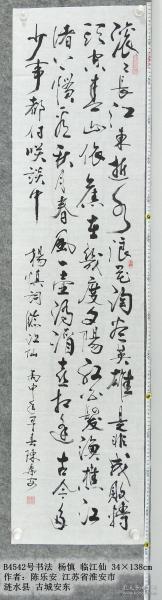 滚滚长江东逝水浪花淘尽英雄是非成败转
头空青山依旧在几度夕阳红白发渔樵江
渚上惯看秋月春风一壶浊酒喜相逢古今多
少事都付笑谈中
杨慎词临江仙 丙申 陈乐安
B4542号书法 杨慎 临江仙 34×138cm
作者：陈乐安 江苏省淮安市
涟水县 古城安东